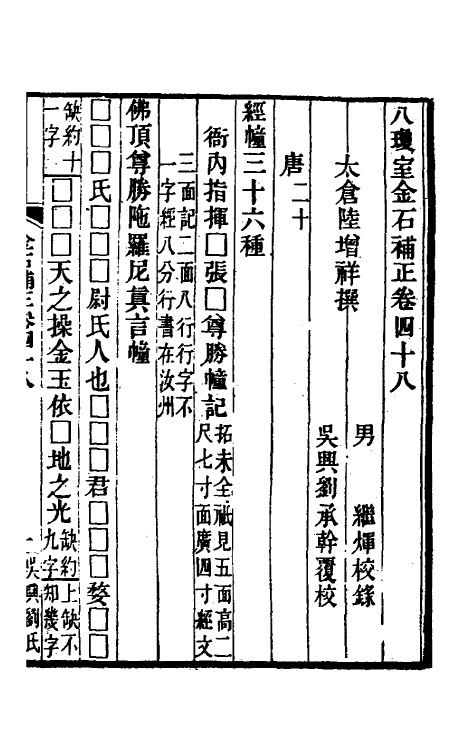 八瓊室金石補正卷四十八
太倉陸增祥撰
男　繼煇校錄
吳興劉承幹覆校
唐二十
經幢三十六種
衙內指揮□張□尊勝幢記拓未全祗見五面高二尺七寸面廣四寸經文
三面記二面八行行字不一字經八分行書在汝州
佛頂尊勝陁羅尼眞言幢
□□□氏□□□尉氏人也□□□君□□□婺□□
缺約十一字□□□天之操金玉依□地之光缺約九字上缺不知幾字
金石補正卷四十八
一吳興劉氏